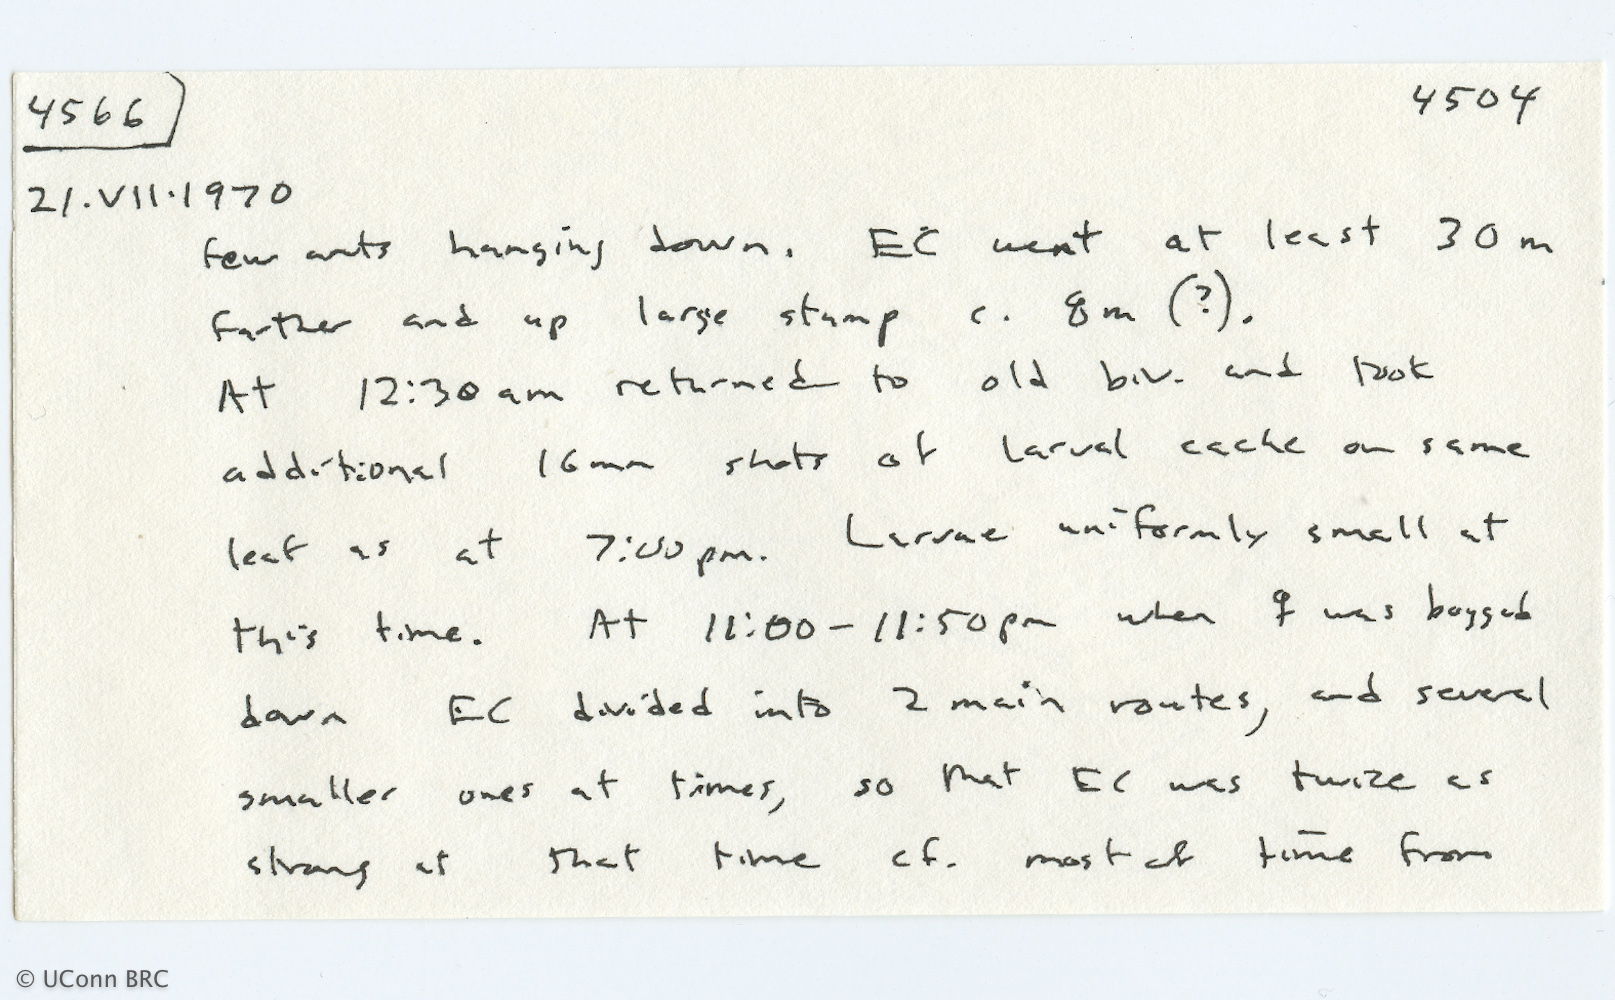 4566
4504
21.VII.1970
few ants hanging down. EC went at least 30 m
farther and up large stump c. 8m (?).
At 12:30 am returned to old biv. and took
additional 16mm shots of larval cache on same
leaf as at 7:00 pm. Larvae uniformly small at
this time. At 11:00 - 11:50 pm when ♀ was bogged
down EC divided into 2 main routes, and several
smaller ones at times, so that EC was twice as
strong at that time cf. most of time from
© UConn BRC